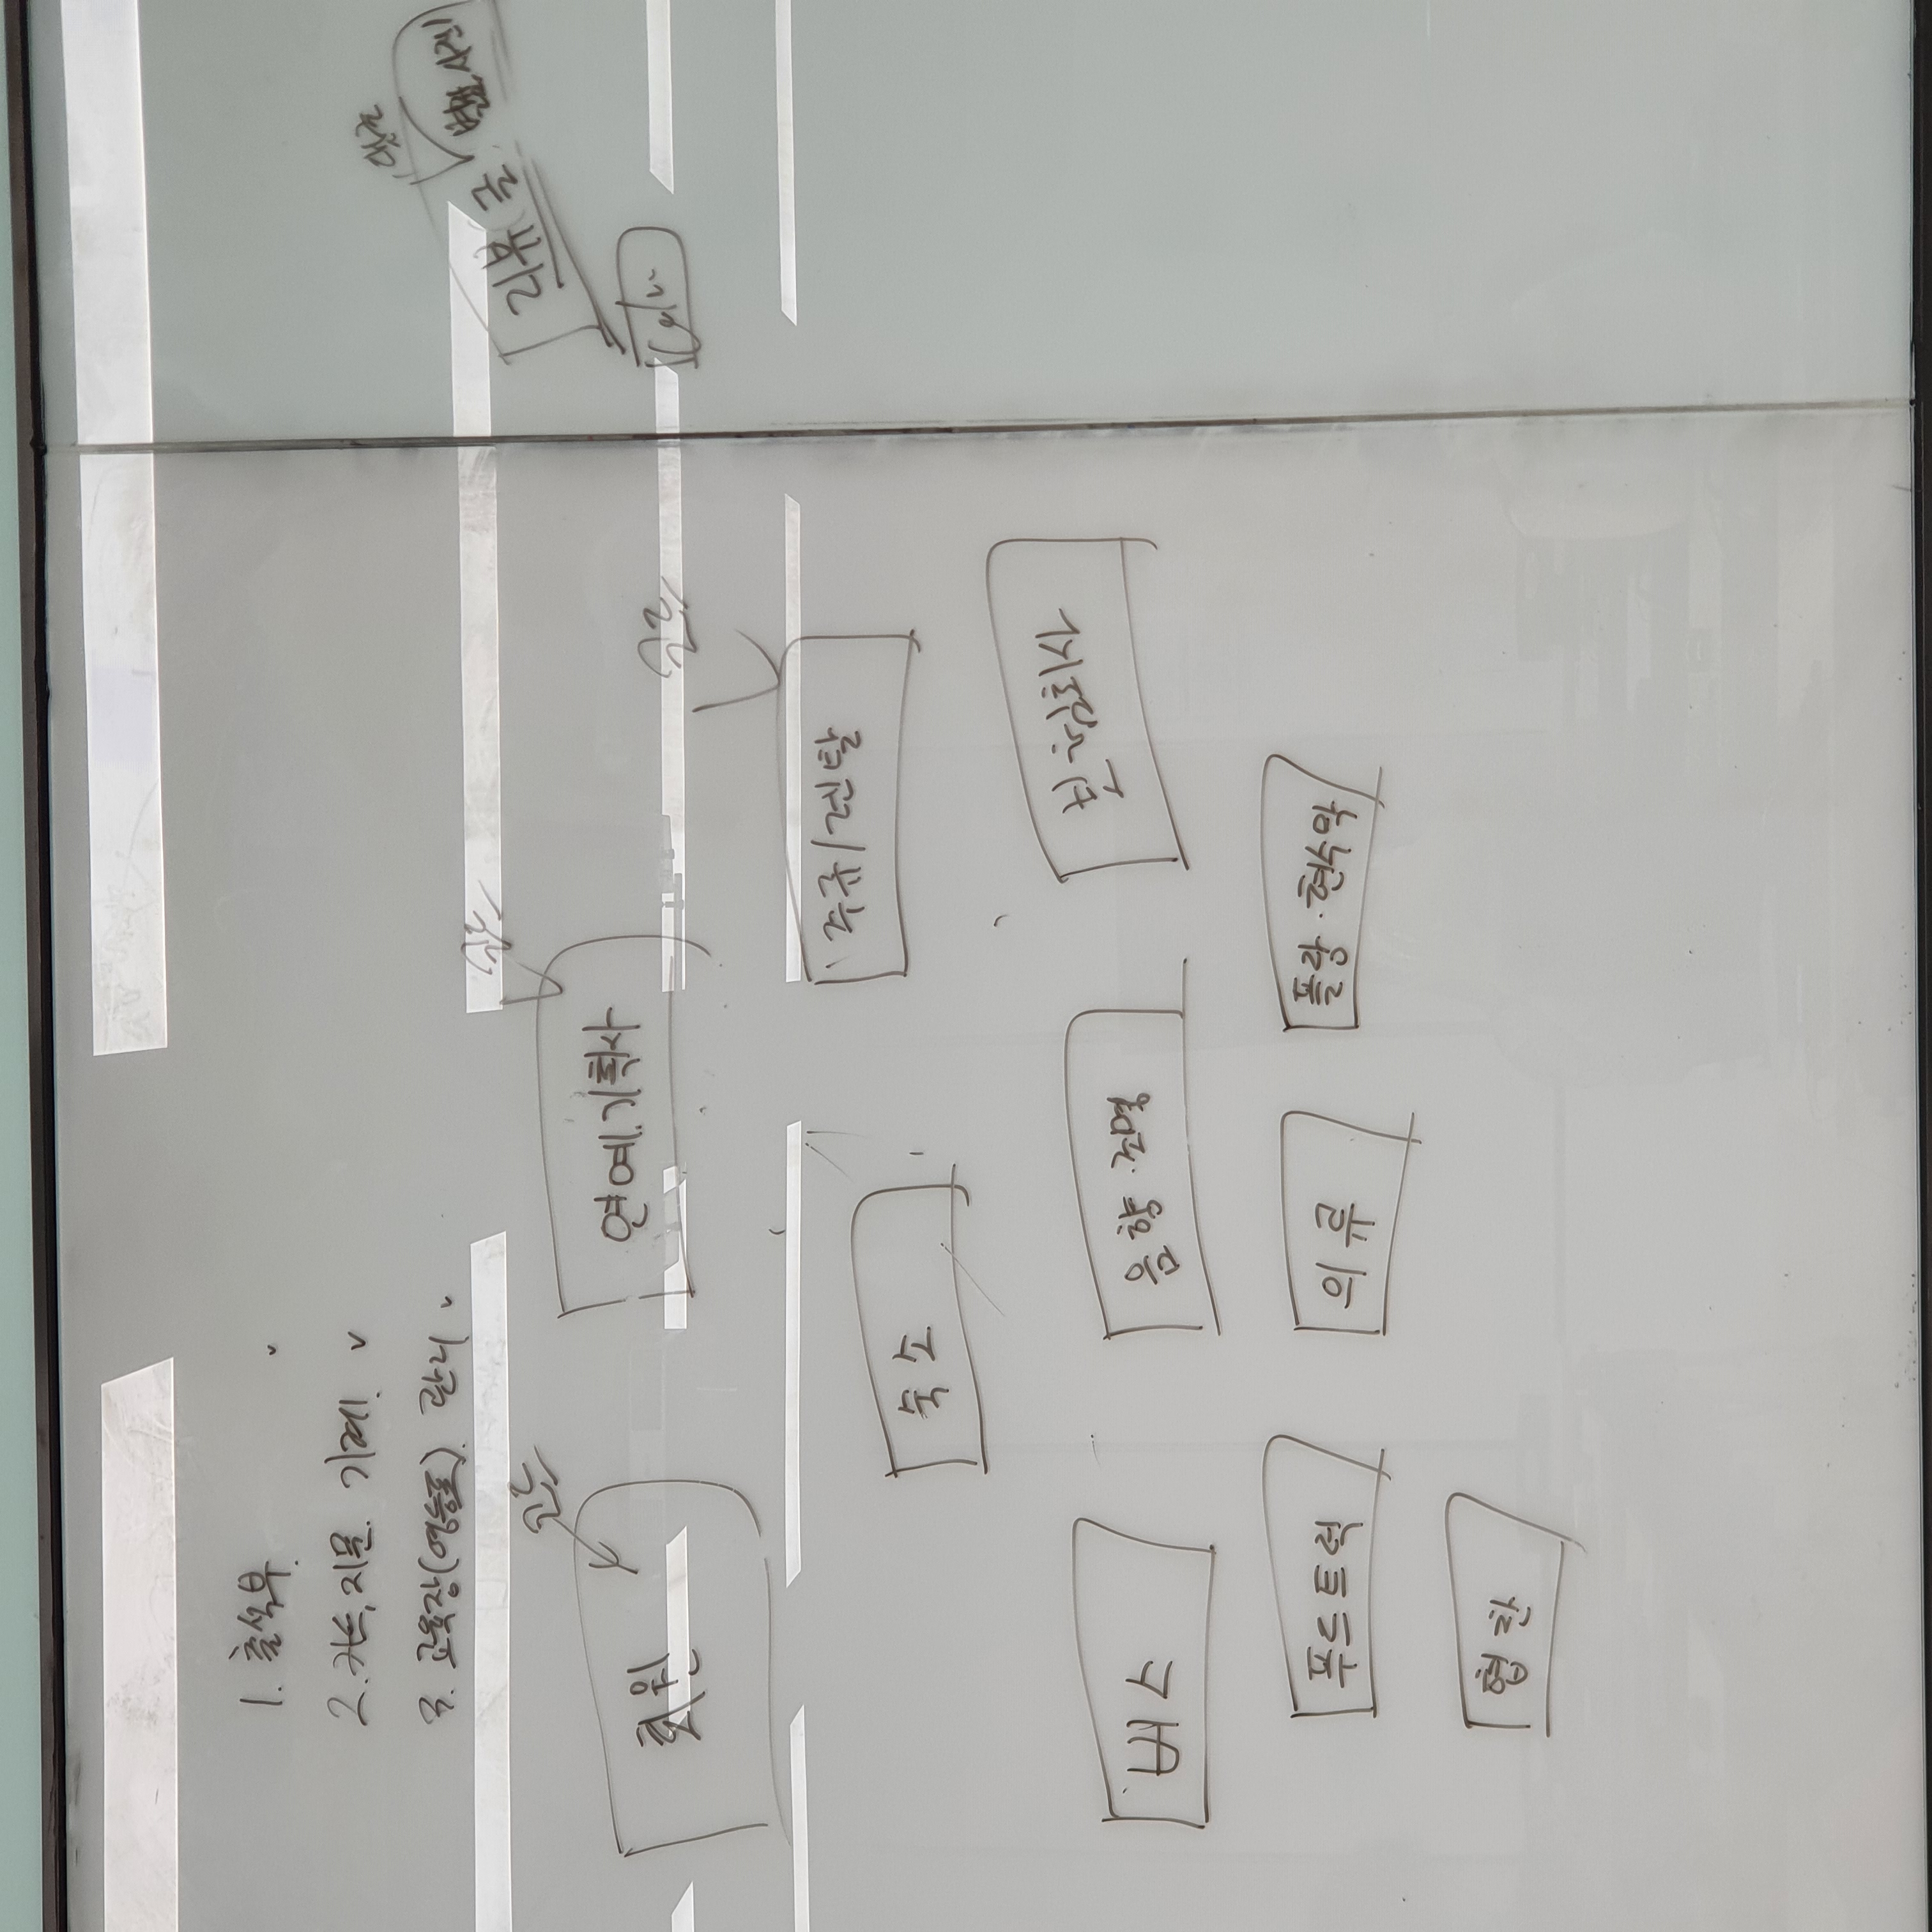 1. 출석부
2. 카드, 지문. 기계.
3. 교육장(영등포). 관리
코드
코드
회원
연예.기획사
코드
주류/렌탈
숙소
보험회사
버스
음향.조명
푸드트럭
의류
플랑.현수막
협찬
댓글
리뷰 글. 사진